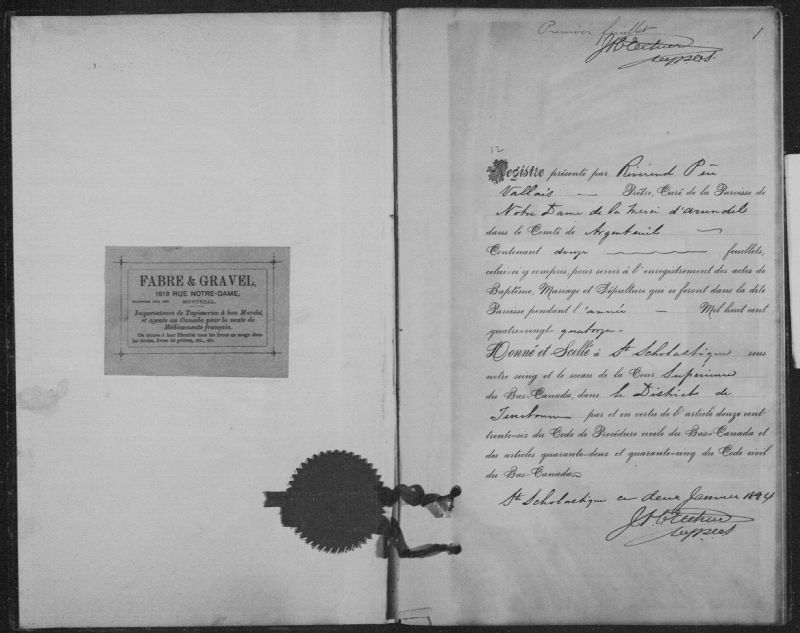 FABRE & GRAVEL,
1619 RUE NOTRE-DAME,
MONTREAL.
Importateurs de Tapisseries à bon Marché,
et agents au Canada pour la vente de
Médicaments français.
On trouve à leur librairie tous les livres en usage dans
les écoles, livres de prières, etc., etc.
Premier feuillet
1
12
Registre présenté par Révérend Père
Vallais — Prêtre, Curé de la Paroisse de
Notre Dame de la Merci d'Arundel
dans le Comté de Argenteuil
Contenant douze feuillets,
celui-ci y compris, pour servir à l'enregistrement des actes de
Baptême, Mariage et Sépulture que se feront dans la dite
Paroisse pendant l'année — Mil huit cent
quatre-vingt-quatorze.
Donné et Scellé à Ste Scholastique sous
notre seing et le sceau de la Cour Supérieure
du Bas-Canada, dans le District de
Terrebonne par et en vertu de l'article douze cent
trente-six du Code de Procédure civile du Bas-Canada et
des articles quarante-deux et quarante-cinq du Code civil
du Bas-Canada
Ste Scholastique ce deux Janvier 1894